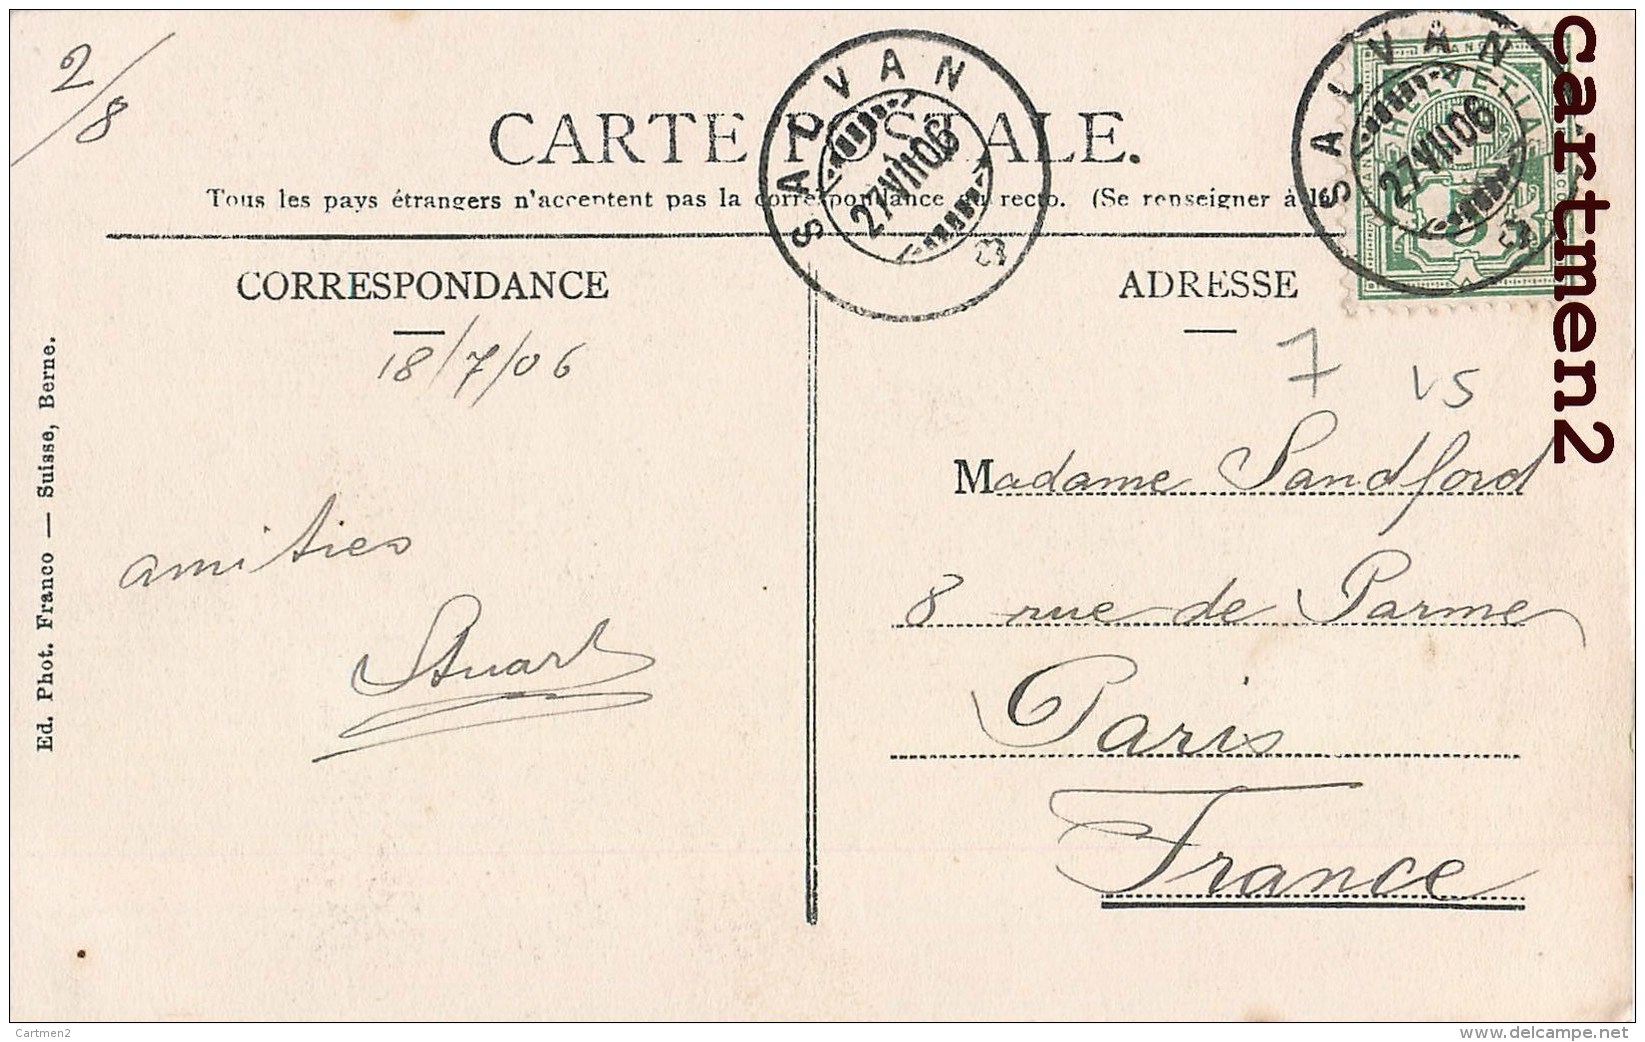 2/8
CARTE POSTALE.
Tous les pays étrangers n'acceptent pas la correspondance au recto. (Se renseigner à la
SALVAN
27 VII 06
SALVAN
27 VII 06
HELVETIA
FRANCO
5
CORRESPONDANCE
ADRESSE
18/7/06
7
Madame Sandford
8 rue de Parme
Paris
France
amities
Stuart
Ed. Phot. Franco — Suisse, Berne.
cartmen2
Cartmen2
www.delcampe.net